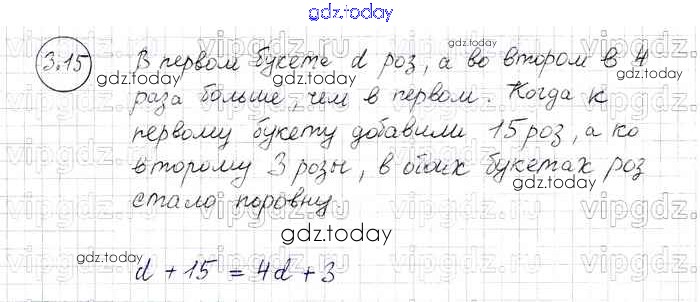 gdz.today
3.15 В первом букете d роз, а во втором в 4
раза больше, чем в первом. Когда к
первому букету добавили 15 роз, а ко
второму 3 розы, в обоих букетах роз
стало поровну.
d + 15 = 4d + 3
gdz.today
gdz.today
gdz.today
gdz.today
gdz.today
gdz.today
vipgdz.ru